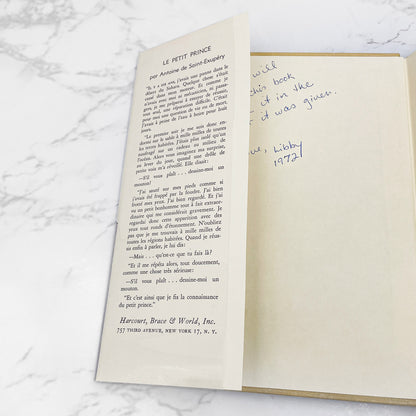 LE PETIT PRINCE
par Antoine de Saint-Exupéry
"Il y a six ans, j'avais une panne dans le
désert du Sahara. Quelque chose s'était
cassé dans mon moteur. Et comme je
n'avais avec moi ni mécanicien, ni passa-
gers, je me préparai à essayer de réussir,
tout seul, une réparation difficile. C'était
pour moi une question de vie ou de mort.
J'avais à peine de l'eau à boire pour huit
jours.
"Le premier soir je me suis donc en-
dormi sur le sable à mille milles de toutes
les terres habitées. J'étais plus isolé qu'un
naufragé sur un radeau au milieu de
l'océan. Alors vous imaginez ma surprise,
au lever du jour, quand une drôle de
petite voix m'a réveillé. Elle disait:
—S'il vous plaît . . . dessine-moi un
mouton!
"J'ai sauté sur mes pieds comme si
j'avais été frappé par la foudre. J'ai bien
frotté mes yeux. J'ai bien regardé. Et j'ai
vu un petit bonhomme tout à fait extraor-
dinaire qui me considérait gravement. Je
regardai donc cette apparition avec des
yeux tout ronds d'étonnement. N'oubliez
pas que je me trouvais à mille milles de
toutes les régions habitées. Quand je réus-
sis enfin à parler, je lui dis:
—Mais . . . qu'est-ce que tu fais là?
"Et il me répéta alors, tout doucement,
comme une chose très sérieuse:
—S'il vous plaît . . . dessine-moi un
mouton.
"Et c'est ainsi que je fis la connaissance
du petit prince."
Harcourt, Brace & World, Inc.
757 THIRD AVENUE, NEW YORK 17, N. Y.
will
this book
it in the
it was given.
Libby
1972